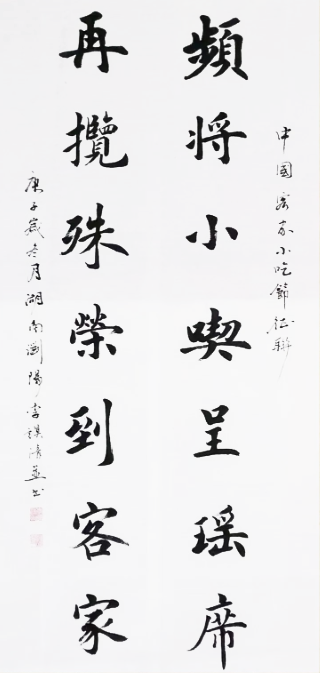 中國客家小吃節征聯
頻將小喫呈瑤席
再攬殊榮到客家
庚子歲冬月湖南瀏陽李